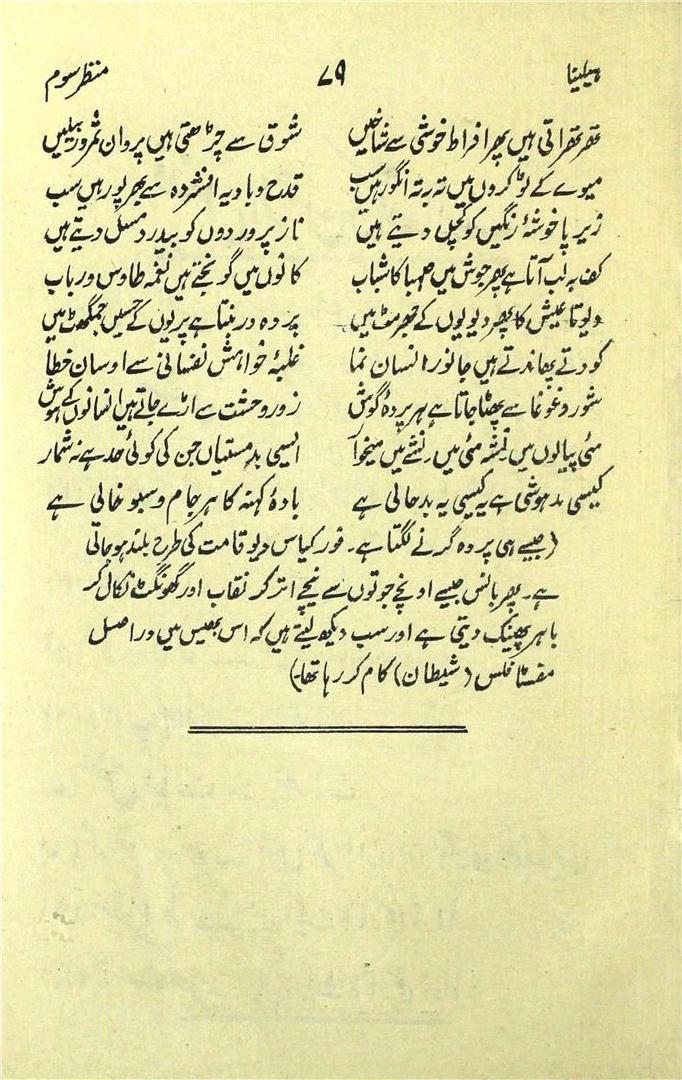 ہیلینا ۷۹ منظر سوم
تھرتھراتی ہیں پھر افراط خوشی سے شاخیں شوق سے چڑھتی ہیں پروان ثمرور بیلیں
میوے کے ٹوکروں میں تہ بہ تہ انگور ہیں سب قدح و بادیہ افشردہ سے بھرپور ہیں سب
زیر پا خوشۂ رنگیں کو کچل دیتے ہیں ناز پروردوں کو بیدرد مسل دیتے ہیں
کف بہ لب آتا ہے پھر جوش میں صہبا کا شباب کانوں میں گونجتے ہیں نغمہ طاوس و رباب
دیوتا عیش کا پھر دیویوں کے جھرمٹ میں پردہ در بنتا ہے پریوں کے حسیں جمگھٹ میں
کودتے پھاندتے ہیں جانور انسان نما غلبۂ خواہش نفسانی سے اوسان خطا
شور و غوغا سے پھٹا جاتا ہے ہر پردۂ گوش زور وحشت سے اڑے جاتے ہیں انسانوں کے ہوش
مئی پیالوں میں ہیں نشے میں میخوار ایسی بدمستیاں جن کی کوئی حد ہے نہ شمار
کیسی مدہوشی ہے یہ کیسی یہ بدحالی ہے بادۂ کہنہ کا ہر جام و سبو خالی ہے
(جیسے ہی پردہ گرنے لگتا ہے۔ فورکیاس دیو قامت کی طرح بلند ہو جاتی
ہے۔ پھر بانس جیسے اونچے جوتوں سے نیچے اتر کر نقاب اور گھونگٹ نکال کر
باہر پھینک دیتی ہے اور سب دیکھ لیتے ہیں کہ اس بھیس میں دراصل
مفسٹافلس (شیطان) کام کر رہا تھا۔)